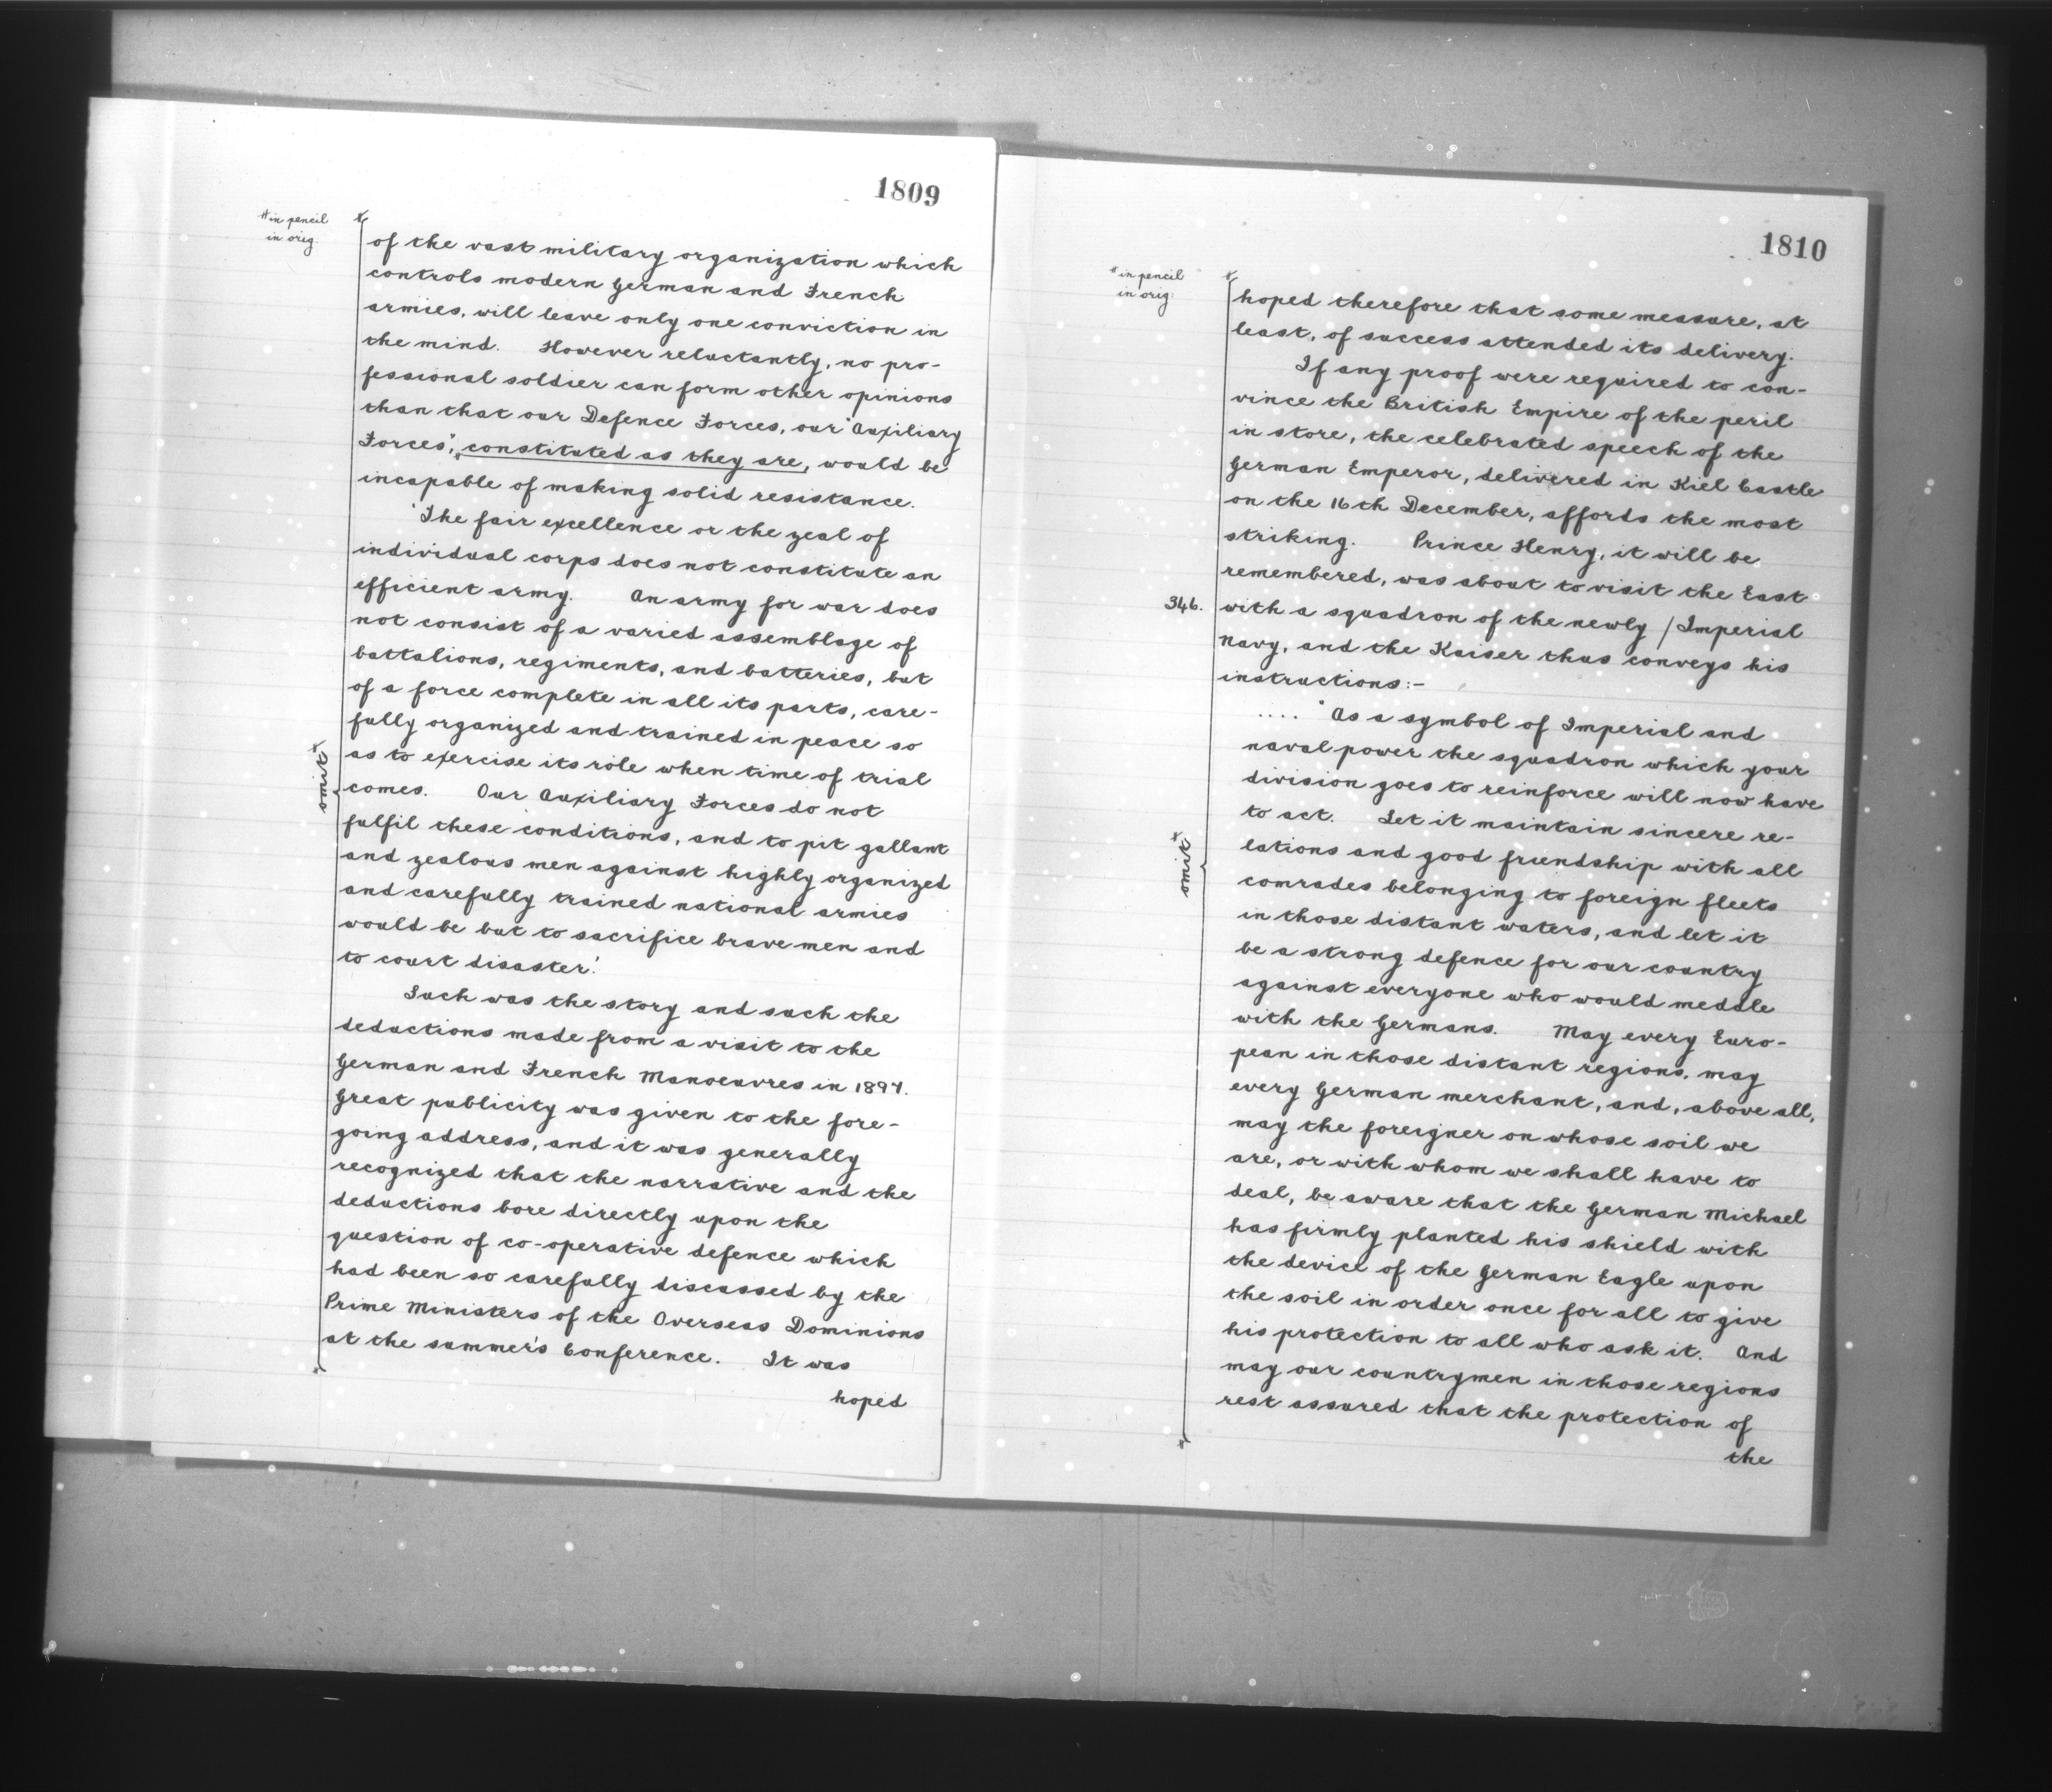 1809
# in pencil
in orig.
of the vast military organization which
controls modern German and French
armies, will leave only one conviction in
the mind. However reluctantly, no pro-
fessional soldier can form other opinions
than that our Defence Forces, our 'Auxiliary
Forces', constituted as they are, would be
incapable of making solid resistance.
'The fair excellence or the zeal of
individual corps does not constitute an
efficient army. An army for war does
not consist of a varied assemblage of
battalions, regiments, and batteries, but
of a force complete in all its parts, care-
fully organized and trained in peace so
as to exercise its rôle when time of trial
omit #
comes. Our Auxiliary Forces do not
fulfil these conditions, and to pit gallant
and zealous men against highly organized
and carefully trained national armies
would be but to sacrifice brave men and
to court disaster.'
Such was the story and such the
deductions made from a visit to the
German and French Manoeuvres in 1897.
Great publicity was given to the fore-
going address, and it was generally
recognized that the narrative and the
deductions bore directly upon the
question of co-operative defence which
had been so carefully discussed by the
Prime Ministers of the Overseas Dominions
at the summer's Conference. It was
hoped
1810
# in pencil
in orig.
hoped therefore that some measure, at
least, of success attended its delivery.
If any proof were required to con-
vince the British Empire of the peril
in store, the celebrated speech of the
German Emperor, delivered in Kiel Castle
on the 16th December, affords the most
striking. Prince Henry, it will be
remembered, was about to visit the East
346. with a squadron of the newly / Imperial
Navy, and the Kaiser thus conveys his
instructions:-
.... "As a symbol of Imperial and
naval power the squadron which your
division goes to reinforce will now have
to act. Let it maintain sincere re-
omit #
lations and good friendship with all
comrades belonging to foreign fleets
in those distant waters, and let it
be a strong defence for our country
against everyone who would meddle
with the Germans. May every Euro-
pean in those distant regions, may
every German merchant, and, above all,
may the foreigner on whose soil we
are, or with whom we shall have to
deal, be aware that the German Michael
has firmly planted his shield with
the device of the German Eagle upon
the soil in order once for all to give
his protection to all who ask it. And
may our countrymen in those regions
rest assured that the protection of
the